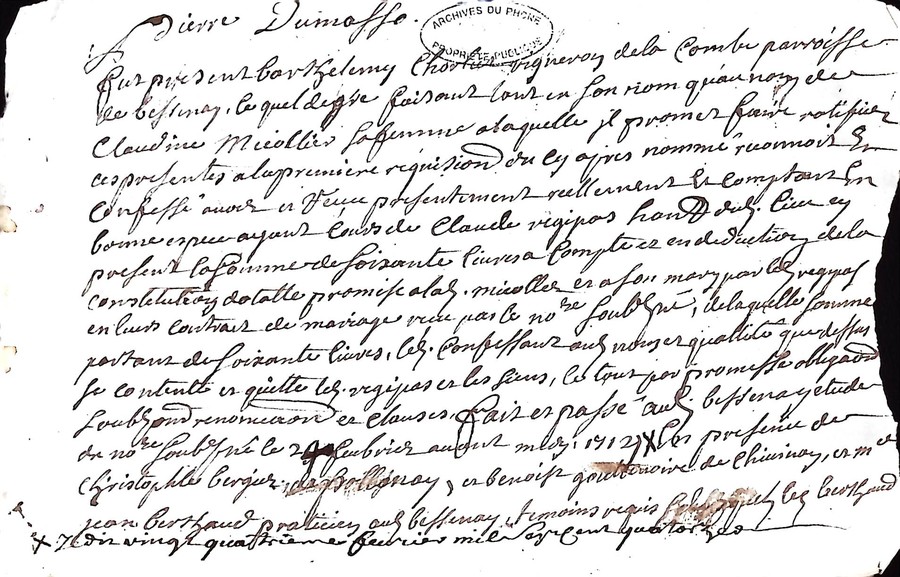 Pierre Dumasso.
ARCHIVES DU RHÔNE
PROPRIÉTÉ PUBLIQUE
fut present barthelemy vigneron de la Combe parroisse
de bessenay, lequel de gre faisant tant en son nom qu'au nom de
Claudine Micollier sa femme a laquelle jl promet faire ratiffier
ces presentes a la premiere requisition du cy apres nommé reconnoit
Confesse avoir et receu presentement reellement Et comptant En
bonne espece ayant cours de Claude regipas dud. lieu cy
present la somme de soixante livres a Compte et en deduction de la
constitution promise a lad. micollier et a son mary par led. regipas
en leurs contrat de mariage receu par le nore soubsné, de laquelle somme
portant de soixante livres, led. Confessant aud nom et qualitté que dessus
se contente et quitte led. regipas et les siens, le tout par promesse obligaon
renonciaon et clauses. fait et passé aud bessenay etude
du nore soubsné le 24 febvrier avant midj 1712 X En presence de
Christophle berger, et benoist goutenoire de Chivinay, et me
jean berthaud praticien aud bessenay temoins requis led. berthaud
X dit vingt quatrieme fevrier mil sept cent quatorze